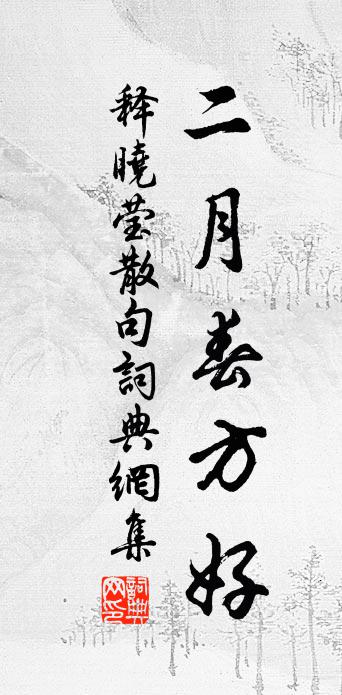 二月春方好
释曉莹散句詞典網集
詞典网印